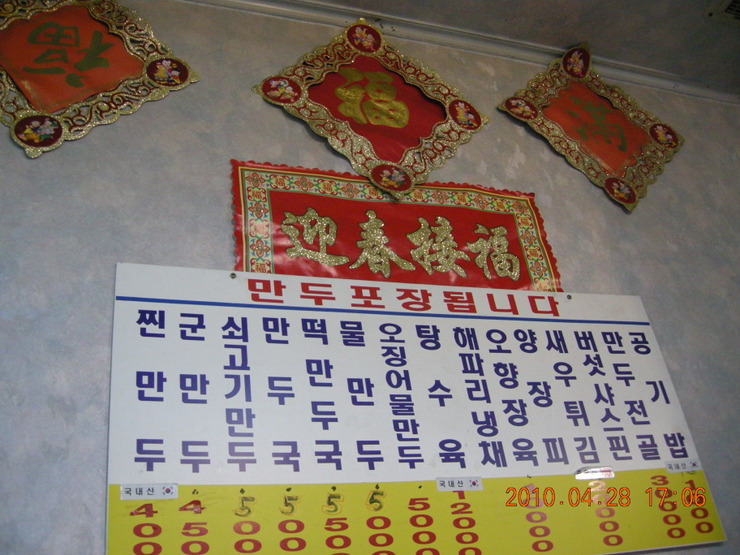 福
福
迎春接福
만두포장됩니다
찐만두
군만두
쇠고기만두
만두국
떡만두국
물만두
오징어물만두
탕수육
해파리냉채
오향장육
양장피
새우튀김
버섯샤스핀
만두전골
공기밥
국내산
국내산
국내산
2010.04.28 17:06